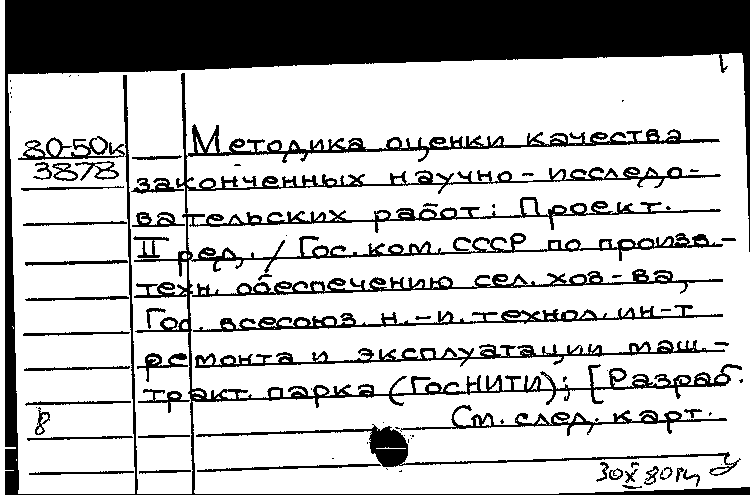 80-50к
3878
Методика оценки качества
законченных научно-исследо-
вательских работ: Проект.
II ред. / Гос. ком. СССР по произв.-
техн. обеспечению сел. хоз-ва,
Гос. всесоюз. н.-и. технол. ин-т
ремонта и эксплуатации маш.-
тракт. парка (ГосНИТИ); [Разраб.
8
См. след. карт.
30 X 80